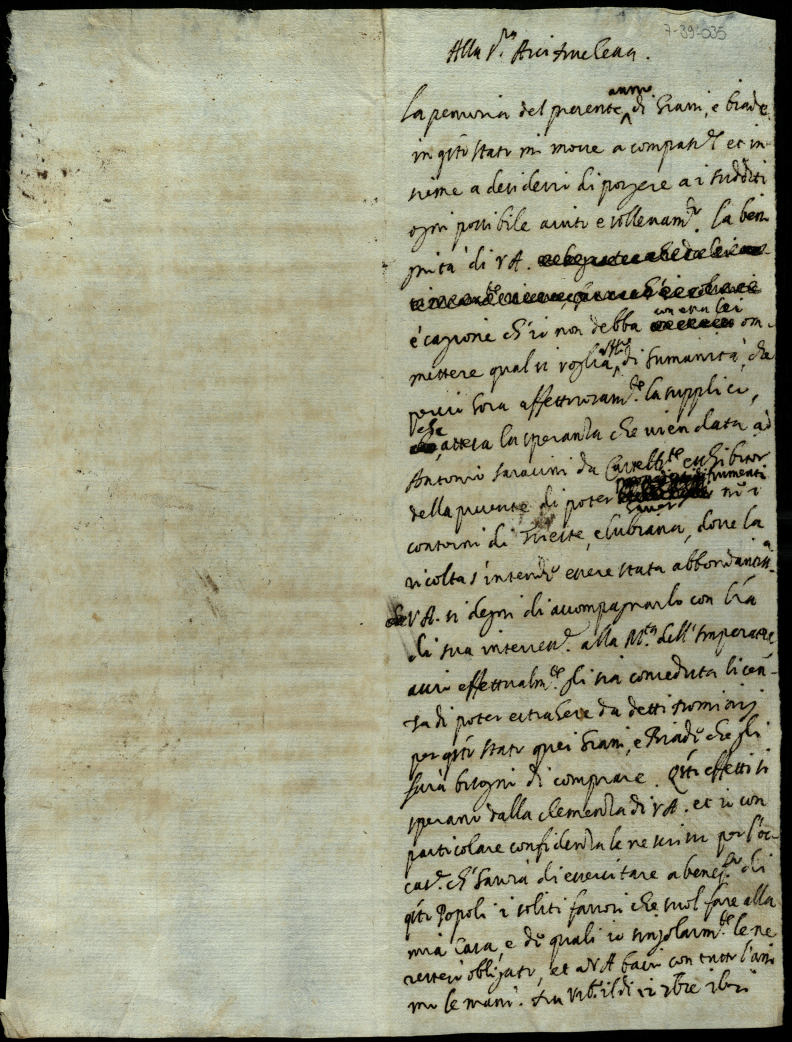 7-39-035
Alla S.ra Arciduchessa.
La penuria del presente anno di Grani, e biade
in q̃sti stati mi move a compass.e et in-
sieme a desiderio di porgere a i sudditi
ogni possibile aiuto e sollevam.to. La beni-
gnità di V.A.
è cagione ch'io non debba con essa lei om-
mettere qual si voglia atto di humanità, che
perciò hora affettuosam.te la supplico,
che attesa la speranza che vien data ad
Antonio Saracini da Castelb.te exhibitor
della presente di poter nei
contorni di Trieste, e Lubiana, dove la
ricolta s'intende essere stata abbondantiss.a
V.A. si degni di accompagnarlo con l'ra
di sua intercess.e alla M.tà dell'Imperatore,
acciò effettualm.te gli sia conceduta licen-
za di poter estrahere da detti
per q̃sti stati quei Grani, e Biade che gli
sarà bisogno di comprare. Q̃sti effetti si
sperano dalla clemenza di V.A. et io con
particolare confidenza le ne scrivo per l'oc-
cas.e ch'havrà di essercitare a benef.o di
q̃sti Popoli i soliti favori che suol fare alla
mia Casa, e de quali io singolarm.te le ne
resterò obligato, et a V.A. bacio con tutto l'ani-
mo le mani. Da